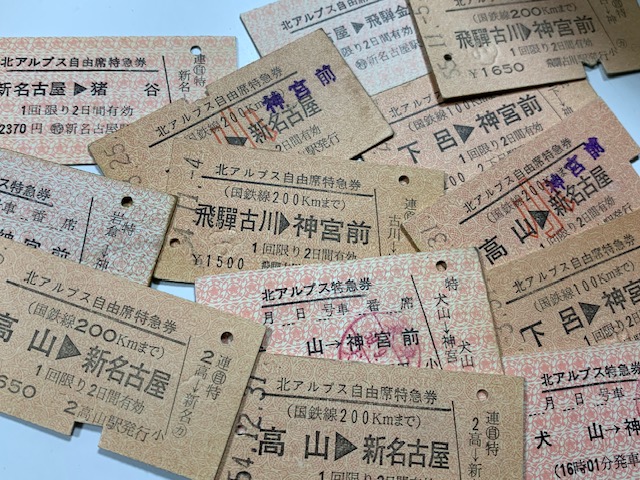 北アルプス自由席特急券
新名古屋▶猪　谷
1回限り2日間有効
2370円
連㊀特
新名
屋▶飛騨金
限り2日間
(国鉄線200Kmまで)
飛騨古川▶神宮前
1回限り2日間有効
¥1650
北アルプス自由席特急券
(国鉄線
▶新名古屋
神宮前
1回限り2日間有効
駅発行
下呂▶神宮前
1回限り2日間有効
北アルプス自由席特急券
(国鉄線200Kmまで)
飛騨古川▶神宮前
1回限り2日間有効
¥1500
古川→
北アルプス自由席特急券
高山▶新名古屋
神宮前
1回限り2日間有効
特急券
号車　番　席
神宮前
岩倉→
北アルプス自由席特急券
(国鉄線200Kmまで)
高山▶新名古屋
1回限り2日間有効
650
2高山駅発行
2高→新名
北アルプス特急券
月　日　号車　番　席
山→神宮前
特
犬山→神宮
北アルプス自由席
(国鉄線100Kmまで)
下呂▶
1回限り2日
北アルプス自由席特急券
(国鉄線200Kmまで)
高山▶新名古屋
1回限り2日間有効
54.12.31
2高→新
北アルプス特急
月　日　号車
犬　山→神
(16時01分発車